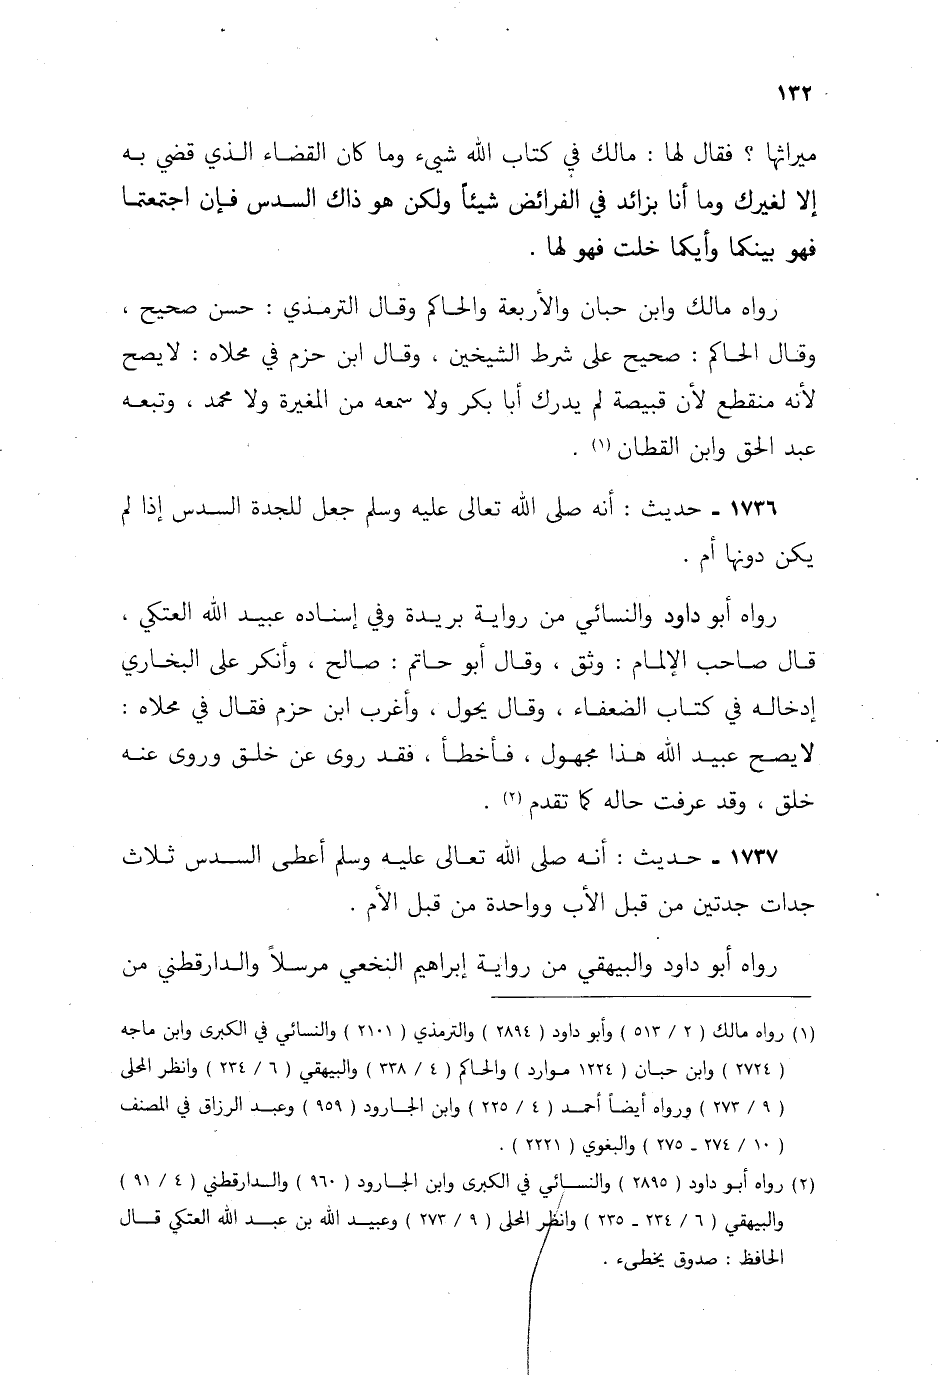 ١٣٢
ميراثها ؟ فقال لها : مالك في كتاب الله شيء وما كان القضاء الذي قضي به
إلا لغيرك وما أنا بزائد في الفرائض شيئاً ولكن هو ذاك السدس فإن اجتمعتما
فهو بينكما وأيكما خلت فهو لها .
رواه مالك وابن حبان والأربعة والحاكم وقال الترمذي : حسن صحيح ،
وقال الحاكم : صحيح على شرط الشيخين ، وقال ابن حزم في محلاه : لايصح
لأنه منقطع لأن قبيصة لم يدرك أبا بكر ولا سمعه من المغيرة ولا محمد ، وتبعه
عبد الحق وابن القطان (١) .
١٧٣٦ - حديث : أنه صلى الله تعالى عليه وسلم جعل للجدة السدس إذا لم
يكن دونها أم .
رواه أبو داود والنسائي من رواية بريدة وفي إسناده عبيد الله العتكي ،
قال صاحب الإلمام : وثق ، وقال أبو حاتم : صالح ، وأنكر على البخاري
إدخاله في كتاب الضعفاء ، وقال يحول ، وأغرب ابن حزم فقال في محلاه :
لايصح عبيد الله هذا مجهول ، فأخطأ ، فقد روى عن خلق وروى عنه
خلق ، وقد عرفت حاله كما تقدم (٢) .
١٧٣٧ - حديث : أنه صلى الله تعالى عليه وسلم أعطى السدس ثلاث
جدات جدتين من قبل الأب وواحدة من قبل الأم .
رواه أبو داود والبيهقي من رواية إبراهيم النخعي مرسلاً والدارقطني من
(١) رواه مالك ( ٢ / ٥١٣ ) وأبو داود ( ٢٨٩٤ ) والترمذي ( ٢١٠١ ) والنسائي في الكبرى وابن ماجه
( ٢٧٢٤ ) وابن حبان ( ١٢٢٤ موارد ) والحاكم ( ٤ / ٣٣٨ ) والبيهقي ( ٦ / ٢٣٤ ) وانظر المحلى
( ٩ / ٢٧٣ ) ورواه أيضاً أحمد ( ٤ / ٢٢٥ ) وابن الجارود ( ٩٥٩ ) وعبد الرزاق في المصنف
( ١٠ / ٢٧٤ - ٢٧٥ ) والبغوي ( ٢٢٢١ ) .
(٢) رواه أبو داود ( ٢٨٩٥ ) والنسائي في الكبرى وابن الجارود ( ٩٦٠ ) والدارقطني ( ٤ / ٩١ )
والبيهقي ( ٦ / ٢٣٤ - ٢٣٥ ) وانظر المحلى ( ٩ / ٢٧٣ ) وعبيد الله بن عبد الله العتكي قال
الحافظ : صدوق يخطىء .